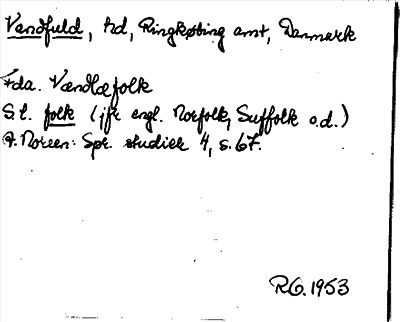 Vandfuld, hd, Ringkøbing amt, Danmark
Fda. Vændlæfolk
S.l. folk (jfr engl. Norfolk, Suffolk o.d.)
A. Noreen: Spr. studier 4, s. 67.
R.G. 1953